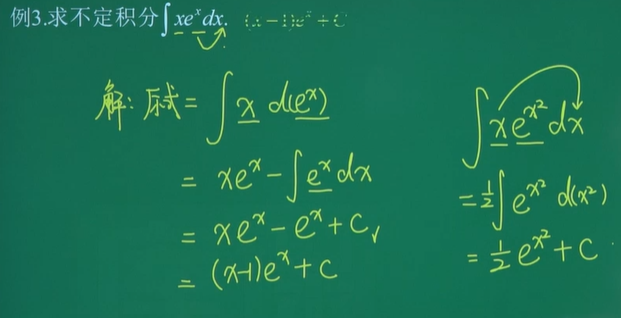 例3.求不定积分∫xeˣdx. (x-1)eˣ+C
解：原式 = ∫x d(eˣ)
= xeˣ - ∫eˣdx
= xeˣ - eˣ + C,
= (x-1)eˣ + C
∫xe^{x²}dx
= ½∫e^{x²} d(x²)
= ½e^{x²} + C